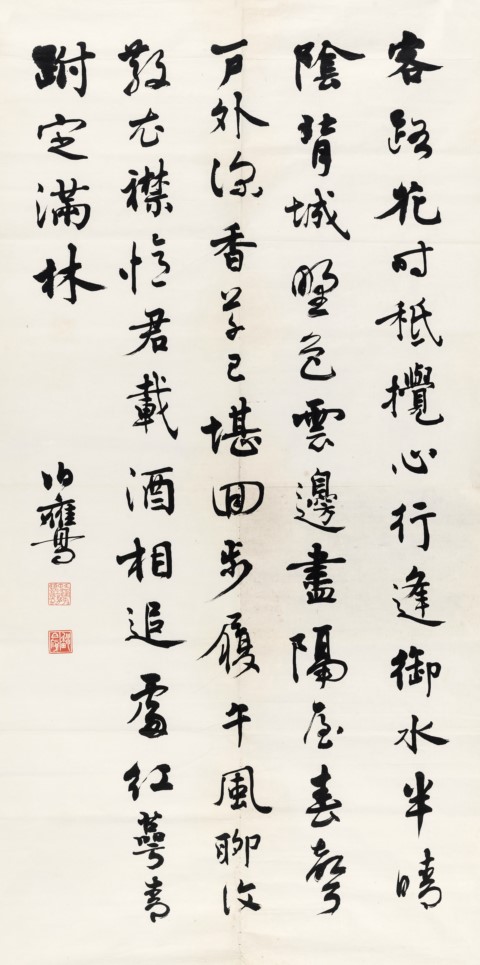 客路花时秪攪心行逢御水半晴
陰背城野色雲邊盡隔屋春聲
户外深香草已堪回步履午風聊復
散衣襟憶君載酒相追處紅萼青
跗定滿林
伯鷹